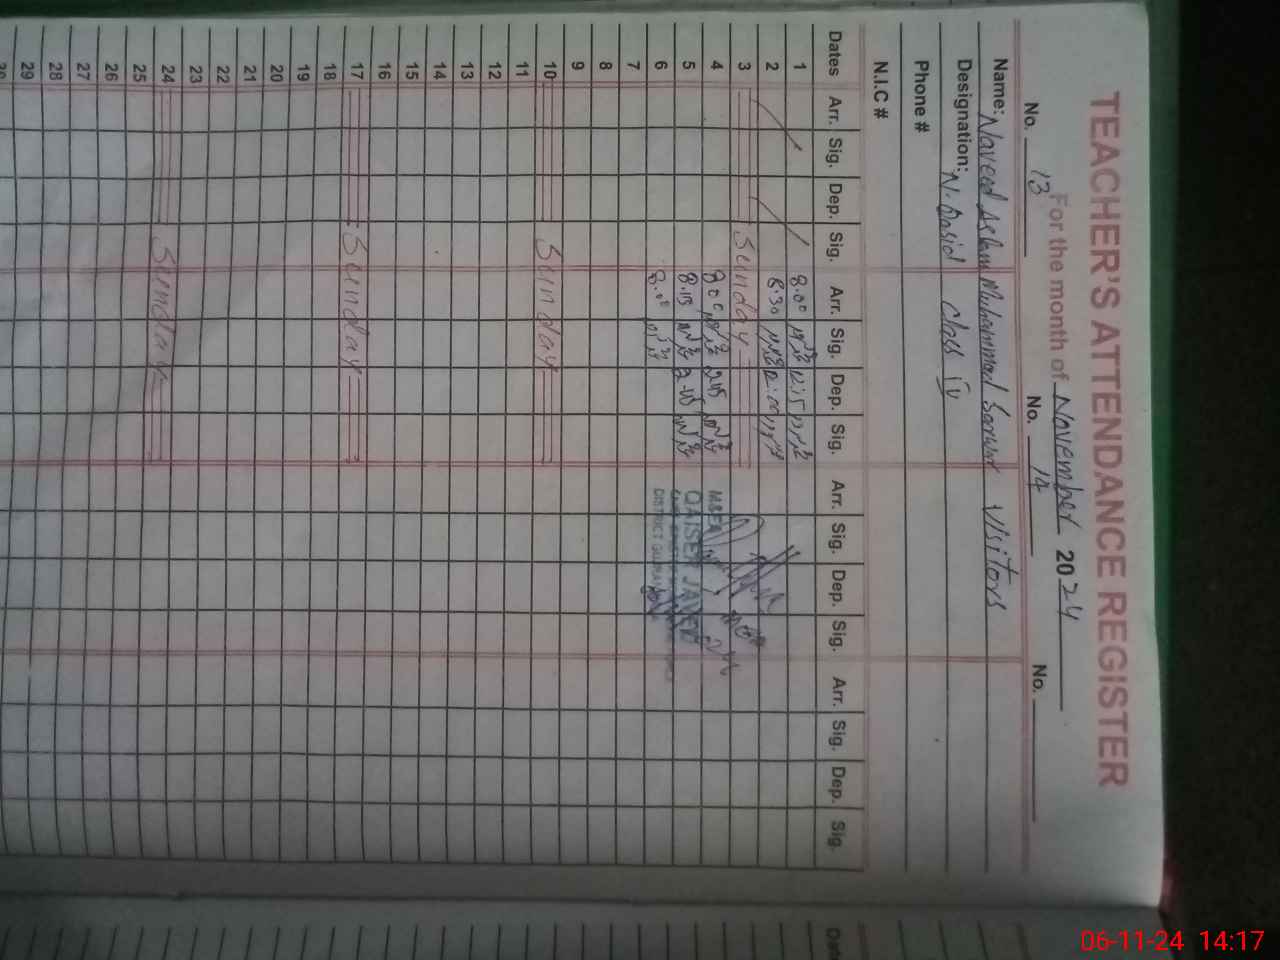 TEACHER'S ATTENDANCE REGISTER
For the month of November 2024
No. 13 No. 14 No.
Name: Naveed Aslam Muhammad Sarwar Visitors
Designation: N. Qasid Class IV
Phone #
N.I.C #
Dates Arr. Sig. Dep. Sig. Arr. Sig. Dep. Sig. Arr. Sig. Dep. Sig. Arr. Sig. Dep. Sig.
1 8.00 12:15
2 8.30 12:00
3 Sunday
4 8.00 2.45 M&EA
5 8.15 2.45 QAISER JAVED
6 8.00 DISTRICT
7
8
9
10 Sunday
11
12
13
14
15
16
17 Sunday
18
19
20
21
22
23
24 Sunday
25
26
27
28
29
06-11-24 14:17